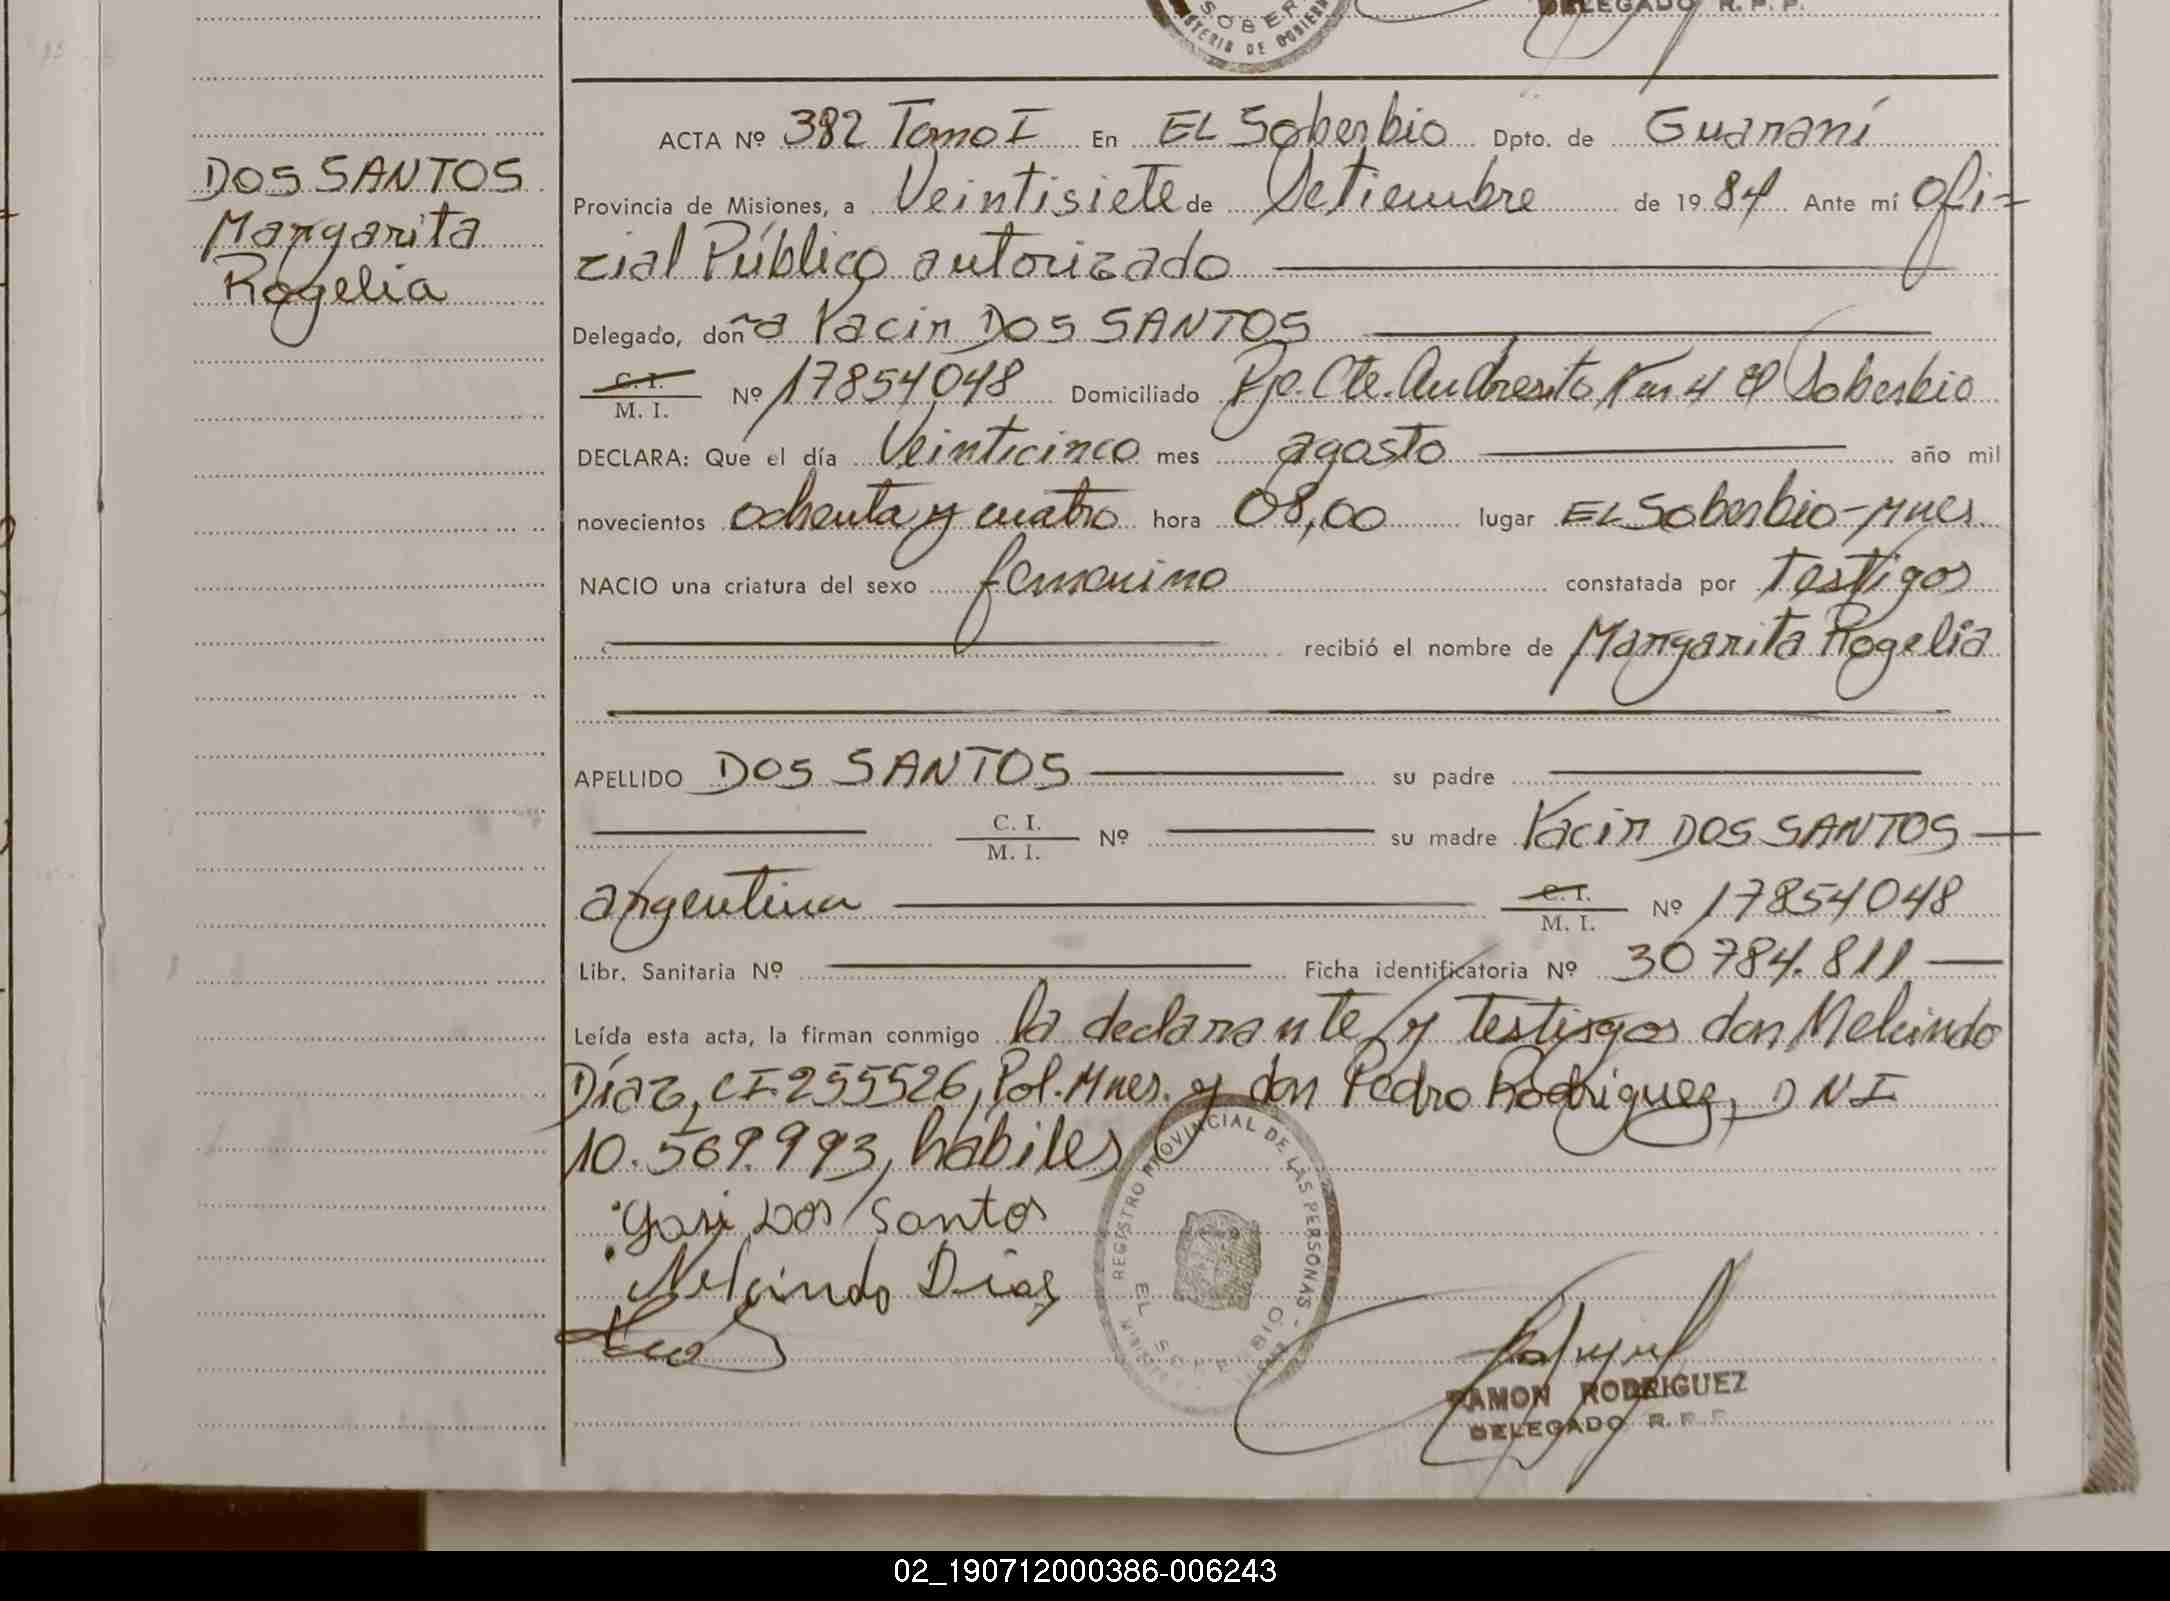 SOBER
STERIO DE GOBIERN
DELEGADO R. P. P.
DOS SANTOS
Margarita
Rogelia
ACTA Nº 382 Tomo I En EL Soberbio Dpto. de Guaraní
Provincia de Misiones, a Veintisiete de Setiembre de 1984 Ante mí Ofi-
cial Público autorizado
Delegado, doña Yacir DOS SANTOS
C. I.
M. I. Nº 17854048 Domiciliado Pje. Cte. Andresito Km 4 El Soberbio
DECLARA: Que el día Veinticinco mes agosto año mil
novecientos ochenta y cuatro hora 08,00 lugar EL Soberbio-Mnes
NACIO una criatura del sexo femenino constatada por Testigos
recibió el nombre de Margarita Rogelia
APELLIDO DOS SANTOS su padre
C. I.
M. I. Nº su madre Yacir DOS SANTOS
argentina C. I.
M. I. Nº 17854048
Libr. Sanitaria Nº Ficha identificatoria Nº 30784.811
Leída esta acta, la firman conmigo la declarante y testigos don Melcindo
Díaz, CI 255526, Pol. Mnes. y don Pedro Rodriguez, DNI
10.569.993, hábiles
Dos Santos
Melcindo Diaz
REGISTRO PROVINCIAL DE LAS PERSONAS -
EL SOBERBIO
RAMON RODRIGUEZ
DELEGADO R. P. P.
02_190712000386-006243